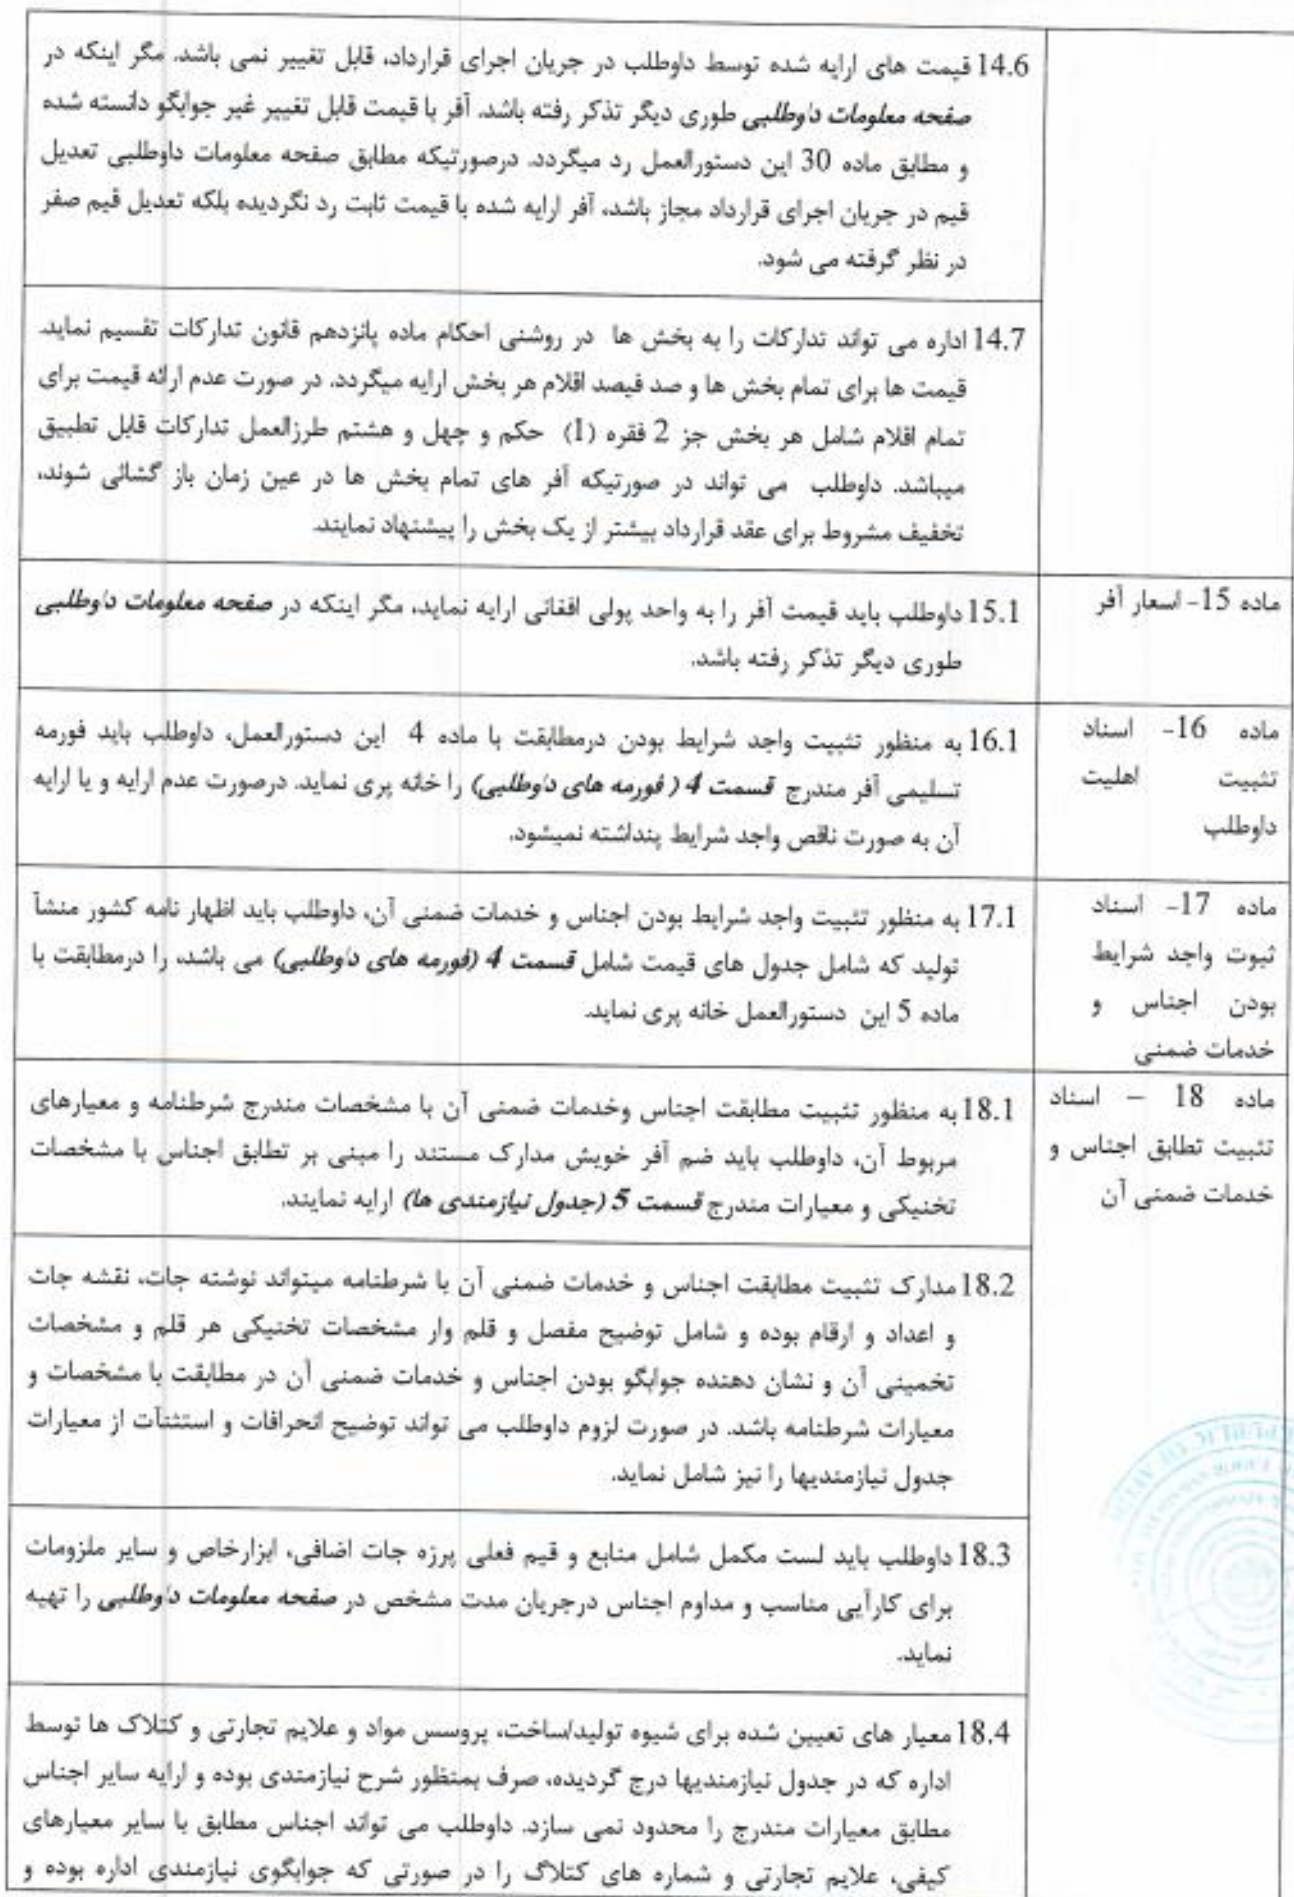 14.6 قیمت های ارایه شده توسط داوطلب در جریان اجرای قرارداد، قابل تغییر نمی باشد. مگر اینکه در
صفحه معلومات داوطلبی طوری دیگر تذکر رفته باشد. آفر با قیمت قابل تغییر غیر جوابگو دانسته شده
و مطابق ماده 30 این دستورالعمل رد میگردد. درصورتیکه مطابق صفحه معلومات داوطلبی تعدیل
قیم در جریان اجرای قرارداد مجاز باشد، آفر ارایه شده با قیمت ثابت رد نگردیده بلکه تعدیل قیم صفر
در نظر گرفته می شود.
14.7 اداره می تواند تدارکات را به بخش ها در روشنی احکام ماده پانزدهم قانون تدارکات تقسیم نماید.
قیمت ها برای تمام بخش ها و صد فیصد اقلام هر بخش ارایه میگردد. در صورت عدم ارائه قیمت برای
تمام اقلام شامل هر بخش جز 2 فقره (1) حکم و چهل و هشتم طرزالعمل تدارکات قابل تطبیق
میباشد. داوطلب می تواند در صورتیکه آفر های تمام بخش ها در عین زمان باز گشائی شوند،
تخفیف مشروط برای عقد قرارداد بیشتر از یک بخش را پیشنهاد نمایند.
ماده 15- اسعار آفر
15.1 داوطلب باید قیمت آفر را به واحد پولی افغانی ارایه نماید، مگر اینکه در صفحه معلومات داوطلبی
طوری دیگر تذکر رفته باشد.
ماده 16- اسناد
تثبیت اهلیت
داوطلب
16.1 به منظور تثبیت واجد شرایط بودن درمطابقت با ماده 4 این دستورالعمل، داوطلب باید فورمه
تسلیمی آفر مندرج قسمت 4 ( فورمه های داوطلبی) را خانه پری نماید. درصورت عدم ارایه و یا ارایه
آن به صورت ناقص واجد شرایط پنداشته نمیشود.
ماده 17- اسناد
ثبوت واجد شرایط
بودن اجناس و
خدمات ضمنی
17.1 به منظور تثبیت واجد شرایط بودن اجناس و خدمات ضمنی آن، داوطلب باید اظهار نامه کشور منشأ
تولید که شامل جدول های قیمت شامل قسمت 4 (فورمه های داوطلبی) می باشد، را درمطابقت با
ماده 5 این دستورالعمل خانه پری نماید.
ماده 18 – اسناد
تثبیت تطابق اجناس و
خدمات ضمنی آن
18.1 به منظور تثبیت مطابقت اجناس وخدمات ضمنی آن با مشخصات مندرج شرطنامه و معیارهای
مربوط آن، داوطلب باید ضم آفر خویش مدارک مستند را مبنی بر تطابق اجناس با مشخصات
تخنیکی و معیارات مندرج قسمت 5 (جدول نیازمندی ها) ارایه نمایند.
18.2 مدارک تثبیت مطابقت اجناس و خدمات ضمنی آن با شرطنامه میتواند نوشته جات، نقشه جات
و اعداد و ارقام بوده و شامل توضیح مفصل و قلم وار مشخصات تخنیکی هر قلم و مشخصات
تخمینی آن و نشان دهنده جوابگو بودن اجناس و خدمات ضمنی آن در مطابقت با مشخصات و
معیارات شرطنامه باشد. در صورت لزوم داوطلب می تواند توضیح انحرافات و استثنآت از معیارات
جدول نیازمندیها را نیز شامل نماید.
18.3 داوطلب باید لست مکمل شامل منابع و قیم فعلی پرزه جات اضافی، ابزارخاص و سایر ملزومات
برای کارآیی مناسب و مداوم اجناس درجریان مدت مشخص در صفحه معلومات داوطلبی را تهیه
نماید.
18.4 معیار های تعیین شده برای شیوه تولید/ساخت، پروسس مواد و علایم تجارتی و کتلاک ها توسط
اداره که در جدول نیازمندیها درج گردیده، صرف بمنظور شرح نیازمندی بوده و ارایه سایر اجناس
مطابق معیارات مندرج را محدود نمی سازد. داوطلب می تواند اجناس مطابق با سایر معیارهای
کیفی، علایم تجارتی و شماره های کتلاگ را در صورتی که جوابگوی نیازمندی اداره بوده و